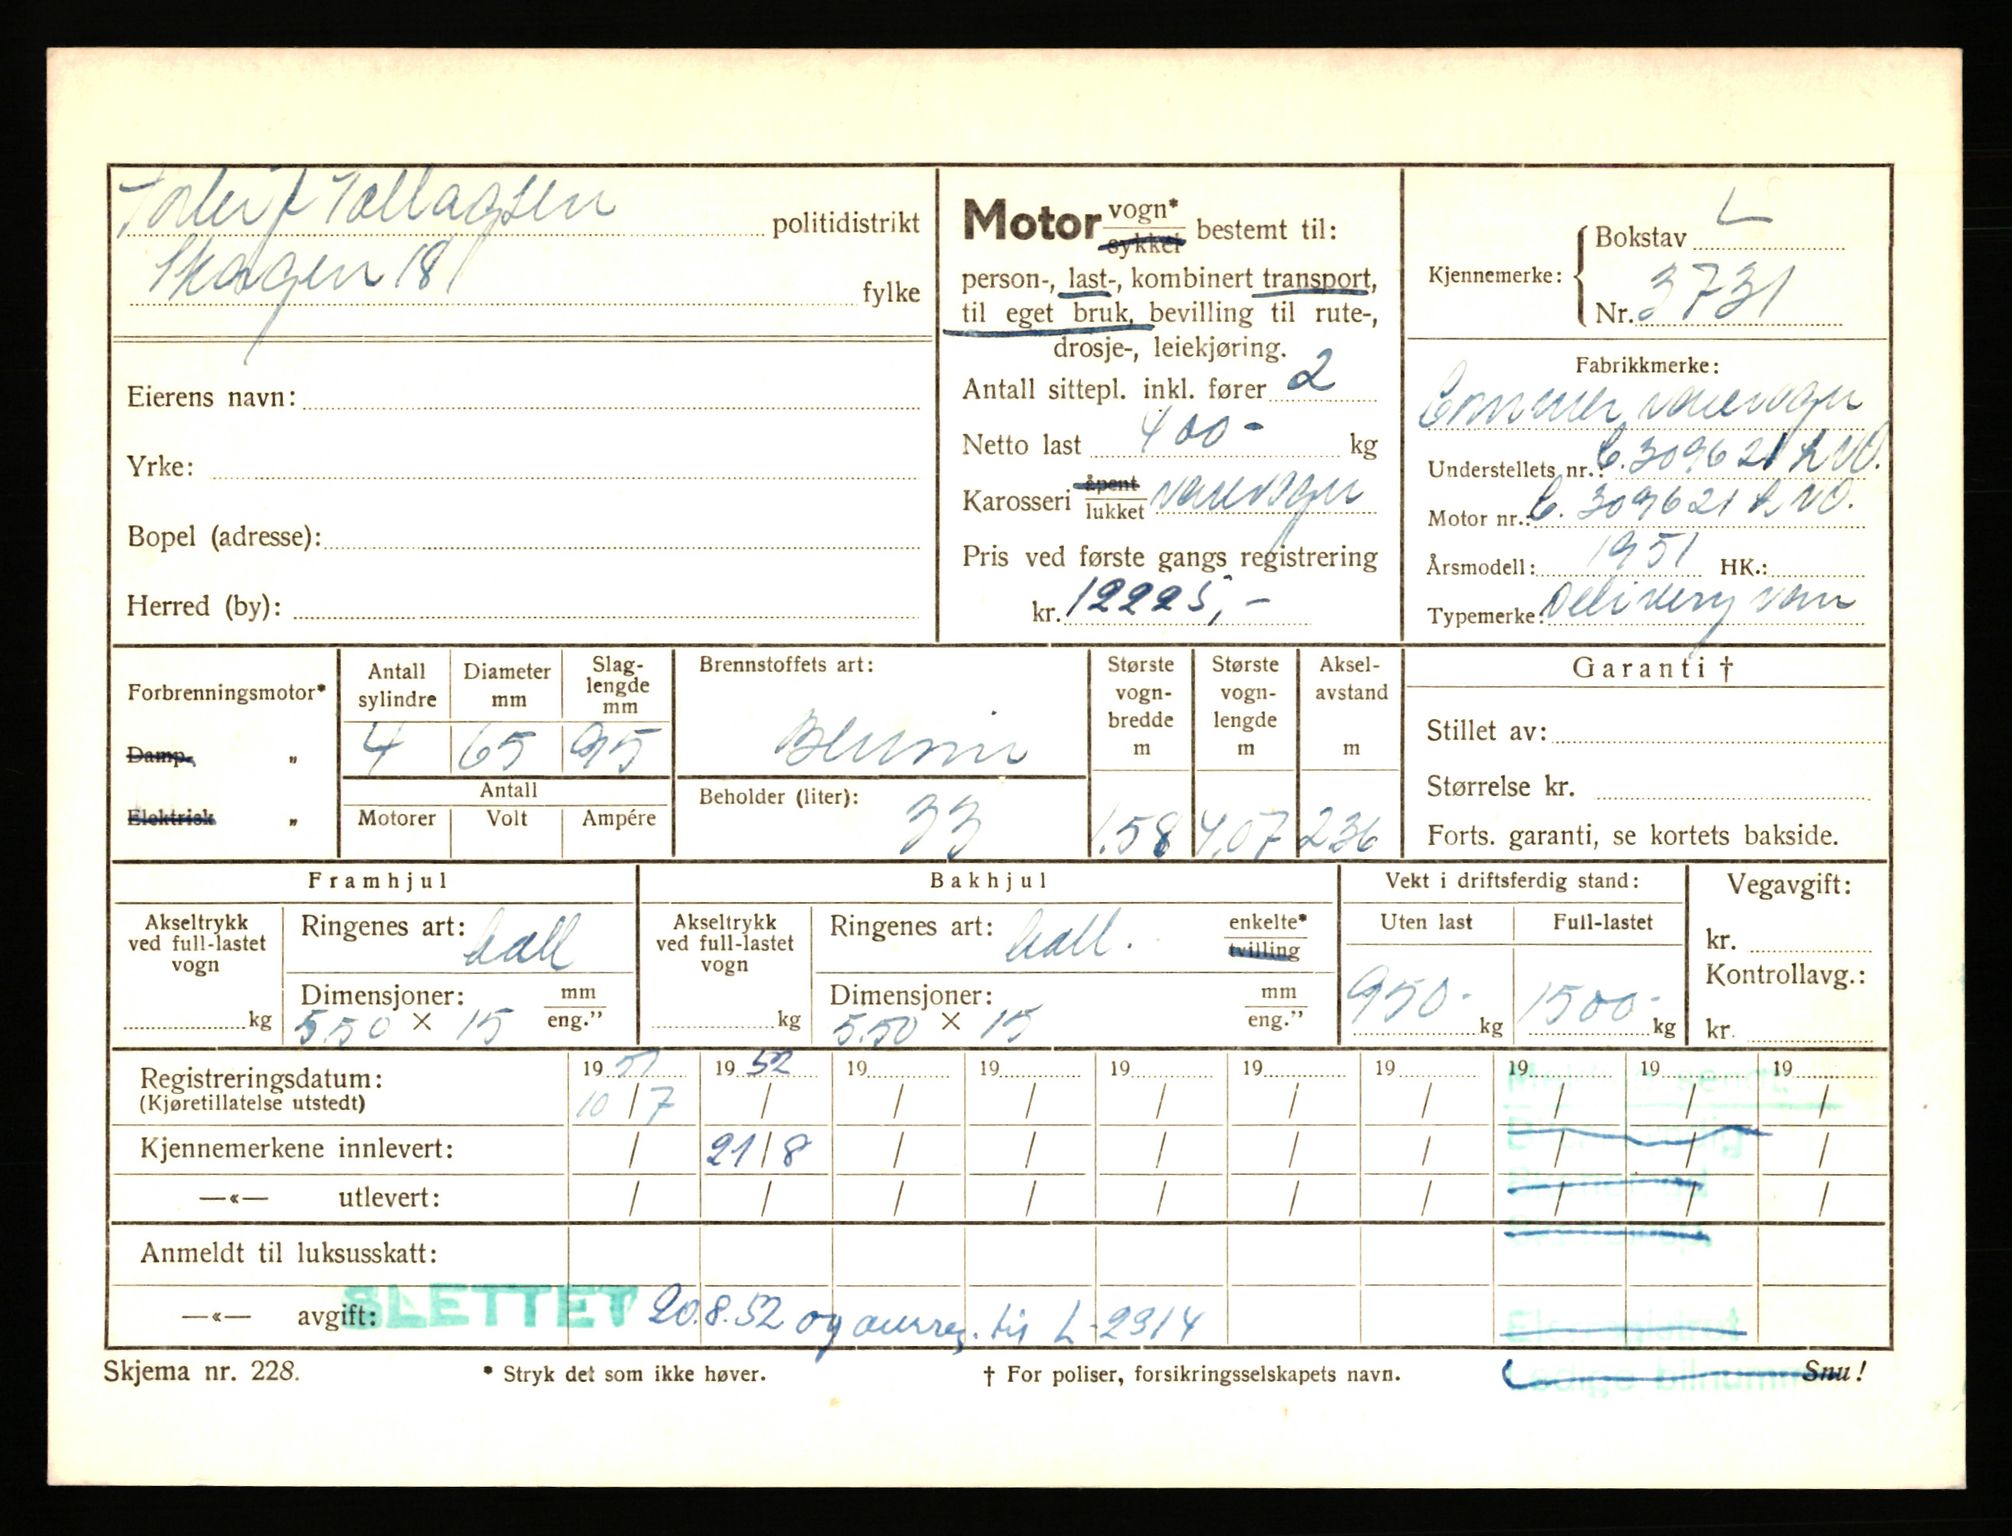 Torleif Tollagsen politidistrikt
Skagen 18 fylke
Eierens navn:
Yrke:
Bopel (adresse):
Herred (by):
Motor vogn* sykkel bestemt til:
person-, last-, kombinert transport,
til eget bruk, bevilling til rute-,
drosje-, leiekjøring.
Antall sittepl. inkl. fører 2
Netto last 400- kg
Karosseri åpent lukket varevogn
Pris ved første gangs registrering
kr. 12225,-
Kjennemerke: Bokstav L
Nr. 3731
Fabrikkmerke:
Commer varevogn
Understellets nr.: C. 309621 LVO.
Motor nr.: C. 309621 LVO.
Årsmodell: 1951 HK.:
Typemerke: Delivery van
Forbrenningsmotor*
Damp- „
Elektrisk „
Antall sylindre Diameter mm Slaglengde mm
4 65 95
Antall
Motorer Volt Ampére
Brennstoffets art:
Bensin
Beholder (liter): 33
Største vognbredde m
1.58
Største vognlengde m
4,07
Akselavstand m
236
Garanti †
Stillet av:
Størrelse kr.
Forts. garanti, se kortets bakside.
Framhjul
Akseltrykk ved full-lastet vogn
kg
Ringenes art: ball
Dimensjoner: mm eng.”
5.50 × 15
Bakhjul
Akseltrykk ved full-lastet vogn
kg
Ringenes art: ball. enkelte* tvilling
Dimensjoner: mm eng.”
5.50 × 15
Vekt i driftsferdig stand:
Uten last Full-lastet
950- kg 1500- kg
Vegavgift:
kr.
Kontrollavg.:
kr.
Registreringsdatum: 19 51 19 52 19 19 19 19 19 19 19 19
(Kjøretillatelse utstedt) 10/7 / / / / / / / / /
Kjennemerkene innlevert: / 21/8 / / / / / / / /
—«— utlevert: / / / / / / / / / /
Anmeldt til luksusskatt:
—«— avgift: SLETTET 20.8.52 og omreg. til L-2314
Ledige bilnumm
Skjema nr. 228. * Stryk det som ikke høver. † For poliser, forsikringsselskapets navn. Snu!